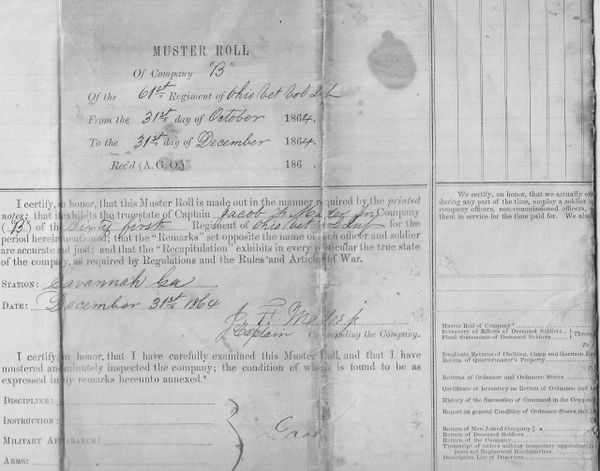 MUSTER ROLL
Of Company "B"
Of the 61st Regiment of Ohio Vet Vol Inf
From the 31st day of October 1864,
To the 31st day of December 1864.
Rec'd (A. G. O.) 186 .
I certify, on honor, that this Muster Roll is made out in the manner required by the printed
notes; that it exhibits the true state of Captain Jacob F. Mader Jr Company
(B) of the Sixty first Regiment of Ohio Vet Vol Inf for the
period herein mentioned; that the "Remarks" set opposite the name of each officer and soldier
are accurate and just; and that the "Recapitulation" exhibits in every particular the true state
of the company, as required by Regulations and the Rules and Articles of War.
STATION: Savannah Ga
DATE: December 31st 1864
J. F. Mader jr
Captain Commanding the Company.
I certify, on honor, that I have carefully examined this Muster Roll, and that I have
mustered and minutely inspected the company; the condition of which is found to be as
expressed in my remarks hereunto annexed.*
DISCIPLINE:
INSTRUCTION:
MILITARY APPEARANCE:
ARMS:
We certify, on honor, that we actually
during any part of the time, employ a soldier
company officers, non-commissioned officers,
them in service for the time paid for. We also
Muster Roll of Company*
Inventory of Effects of Deceased Soldiers,
Final Statements of Deceased Soldiers,
Duplicate Returns of Clothing, Camp and Garrison
Return of Quartermaster's Property
Returns of Ordnance and Ordnance Stores
Certificate of Inventory on Return of Ordnance and
History of the Succession of Command in the Company
Report on general Condition of Ordnance Stores, and
Return of Men Joined Company
Return of Deceased Soldiers
Return of the Company
Transcript of orders making temporary appointments
posts and Regimental Headquarters
Descriptive List of Deserters